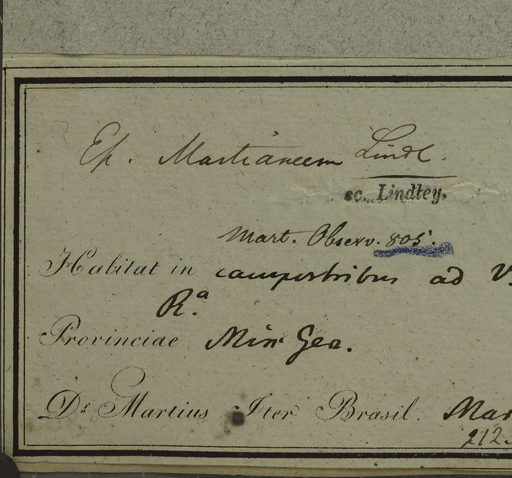 Ep. Martianum Lindl.
sc. Lindley.
Mart. Observ. 805.
Habitat in campestribus ad V.
R.a
Provinciae Min Ger.
Ds Martius Iter Brasil. Mar
212.